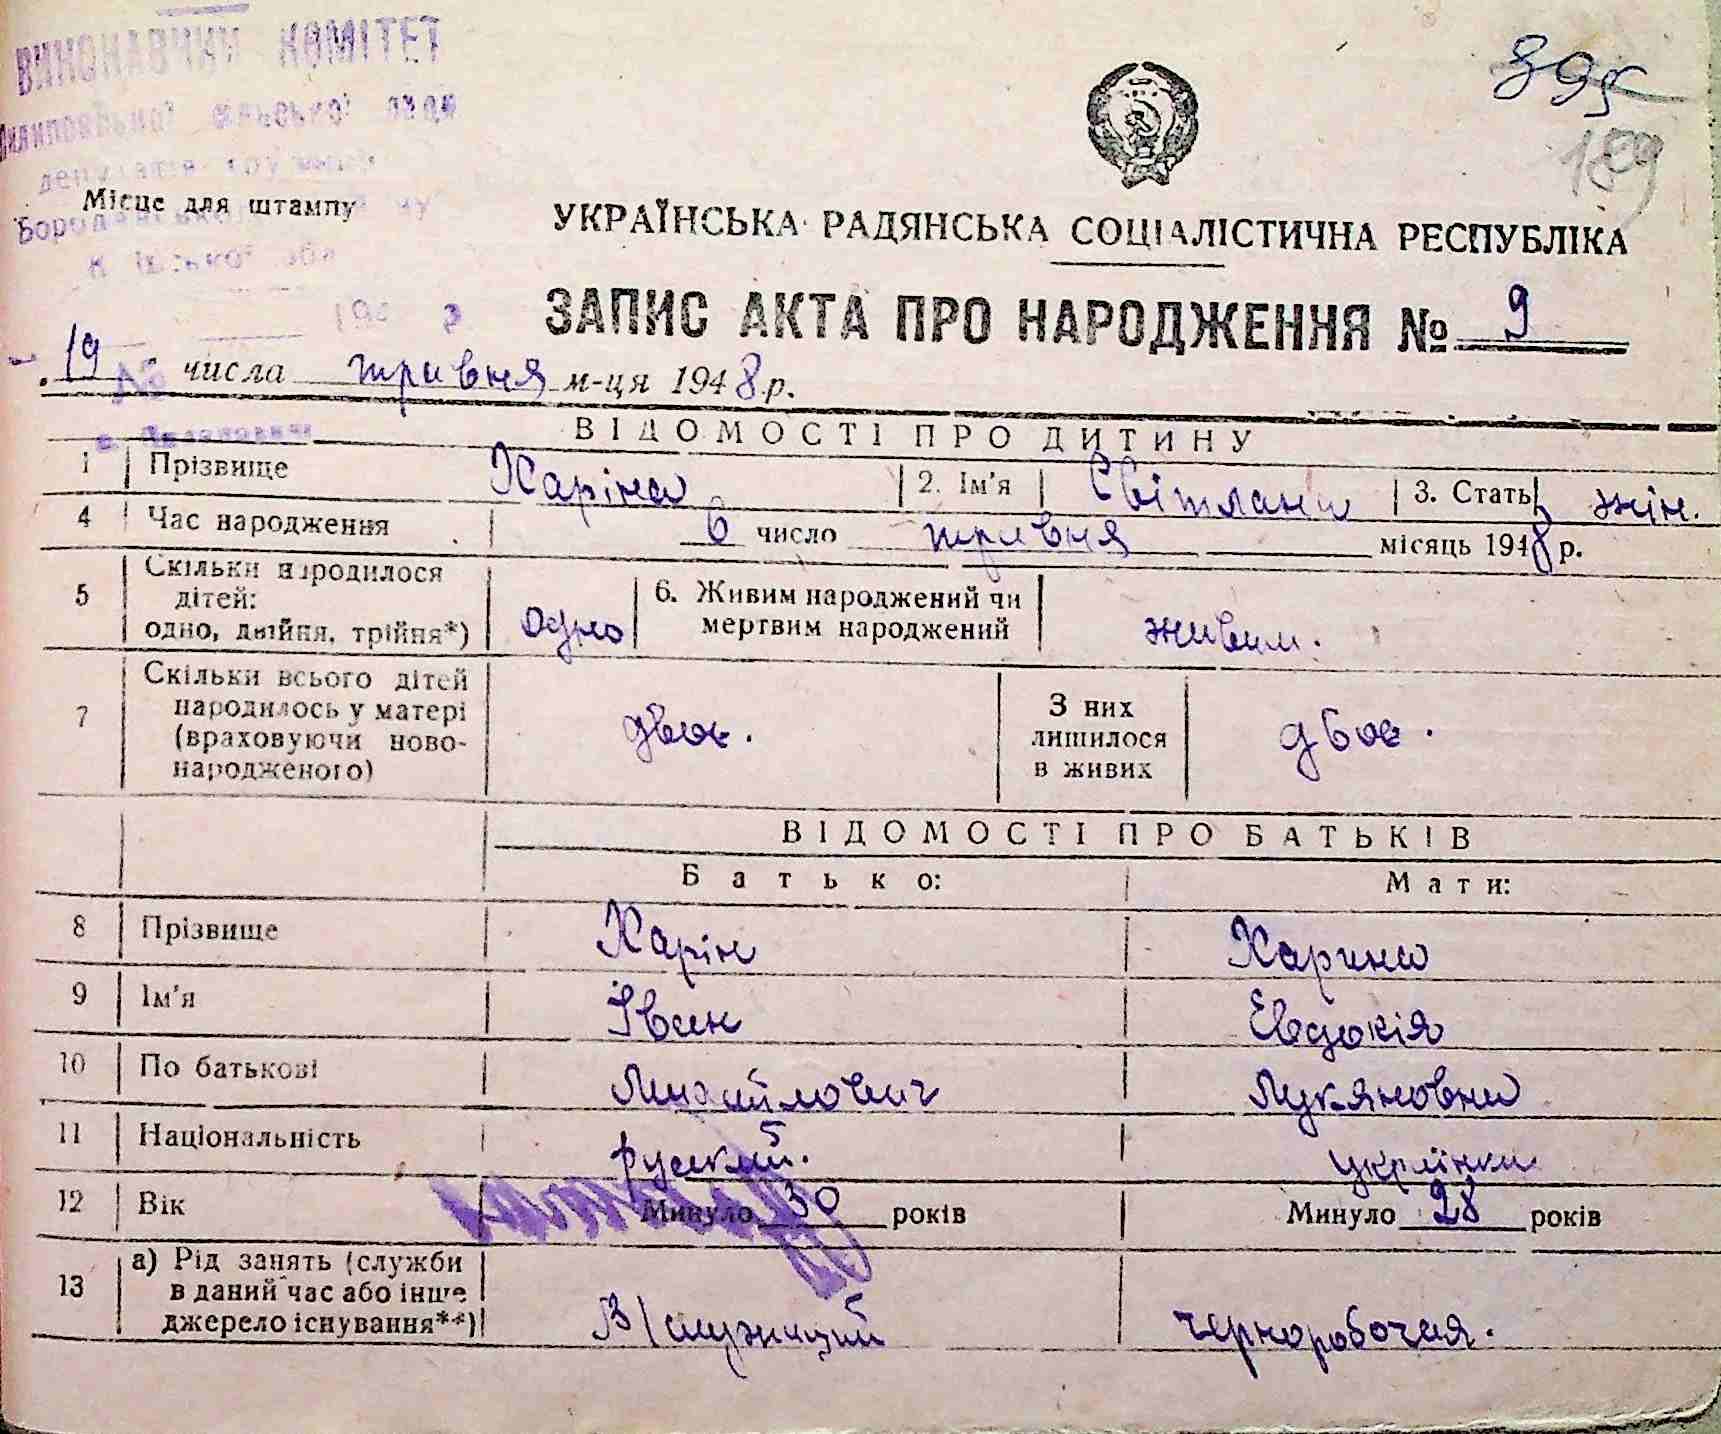 ВИКОНАВЧИЙ КОМІТЕТ
сільської ради
895
189
Місце для штампу
УКРАЇНСЬКА РАДЯНСЬКА СОЦІАЛІСТИЧНА РЕСПУБЛІКА
ЗАПИС АКТА ПРО НАРОДЖЕННЯ № 9
19 числа травня м-ця 1948 р.
ВІДОМОСТІ ПРО ДИТИНУ
1 Прізвище Харіна 2. Ім'я Світлана 3. Стать жін.
4 Час народження 6 число травня місяць 1948 р.
5 Скільки народилося
дітей:
одно, двійня, трійня*) одно 6. Живим народжений чи
мертвим народжений живим.
7 Скільки всього дітей
народилось у матері
(враховуючи ново-
народженого) двое. З них
лишилося
в живих двое.
ВІДОМОСТІ ПРО БАТЬКІВ
Батько: Мати:
8 Прізвище Харін Харина
9 Ім'я Іван Евдокія
10 По батькові Михайлович Лукяновна
11 Національність руський. українка
12 Вік Минуло 30 років Минуло 28 років
13 а) Рід занять (служби
в даний час або інше
джерело існування**) В/служащий чорноробочая.